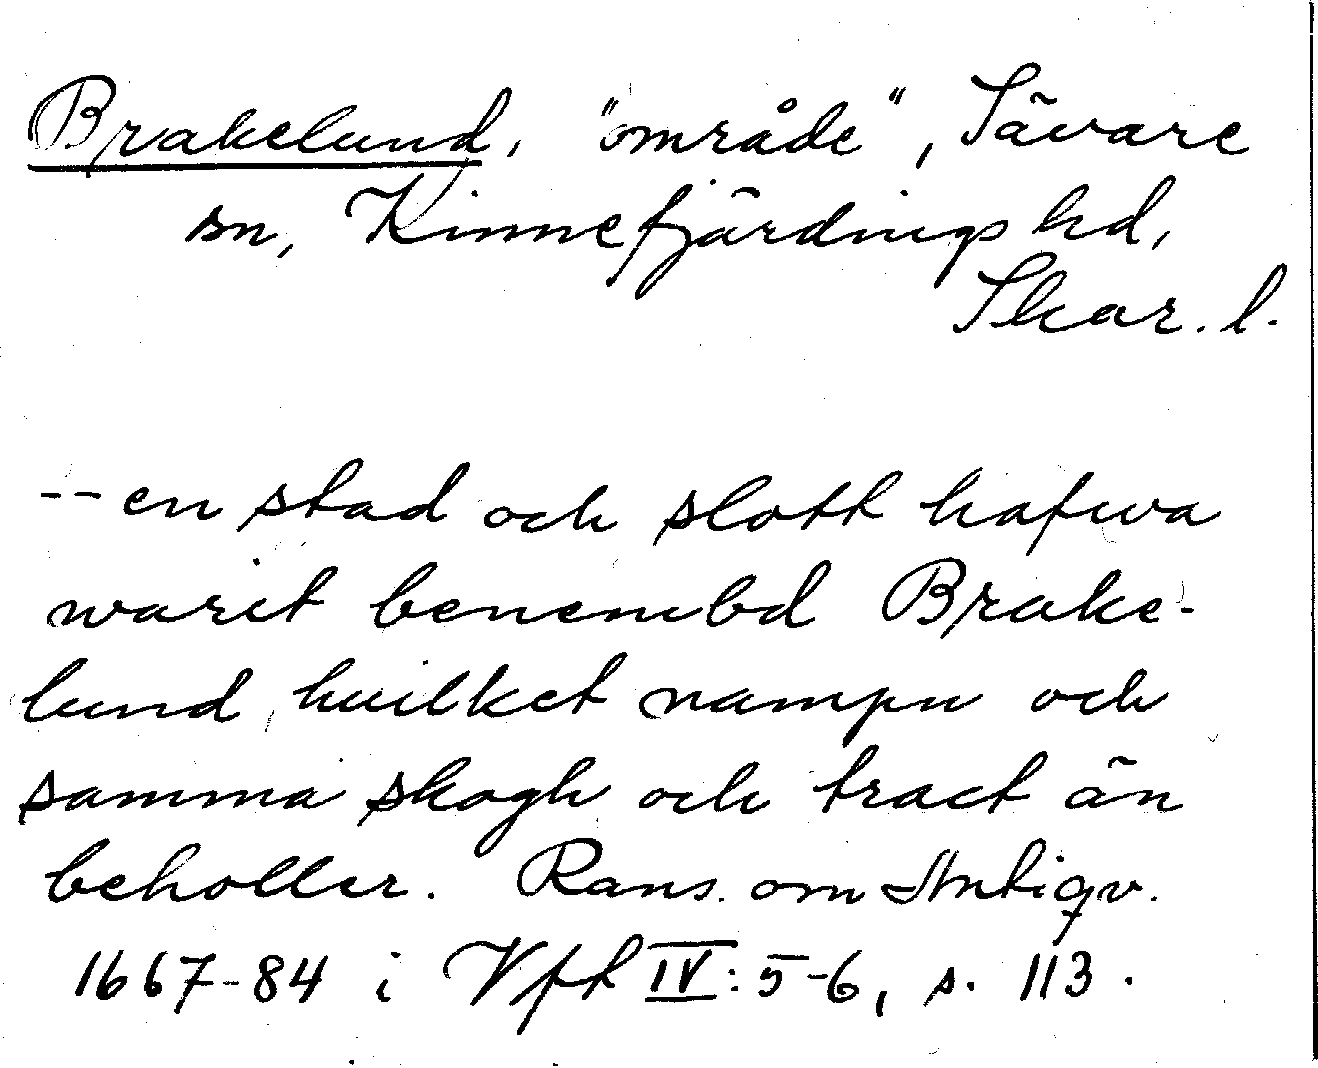 Brakelund, "område", Sävare
sn, Kinnefjärdings hd,
Skar. l.
-- en stad och slott hafwa
warit benembd Brake-
lund, huilket nampn och
samma skogh och tract än
beholler. Rans. om Antiqv.
1667-84 i Vft IV: 5-6, s. 113.